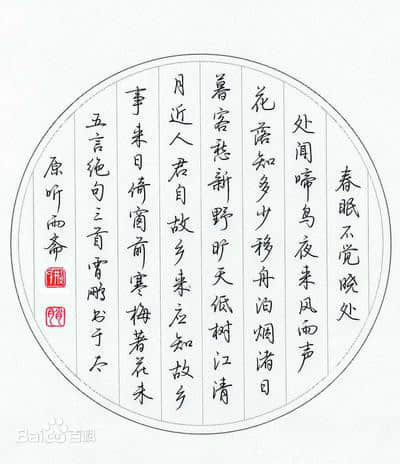 春眠不觉晓处
处闻啼鸟夜来风雨声
花落知多少移舟泊烟渚日
暮客愁新野旷天低树江清
月近人君自故乡来应知故乡
事来日倚窗前寒梅著花未
五言绝句三首霄鹏书于太
原听雨斋
Baidu百科